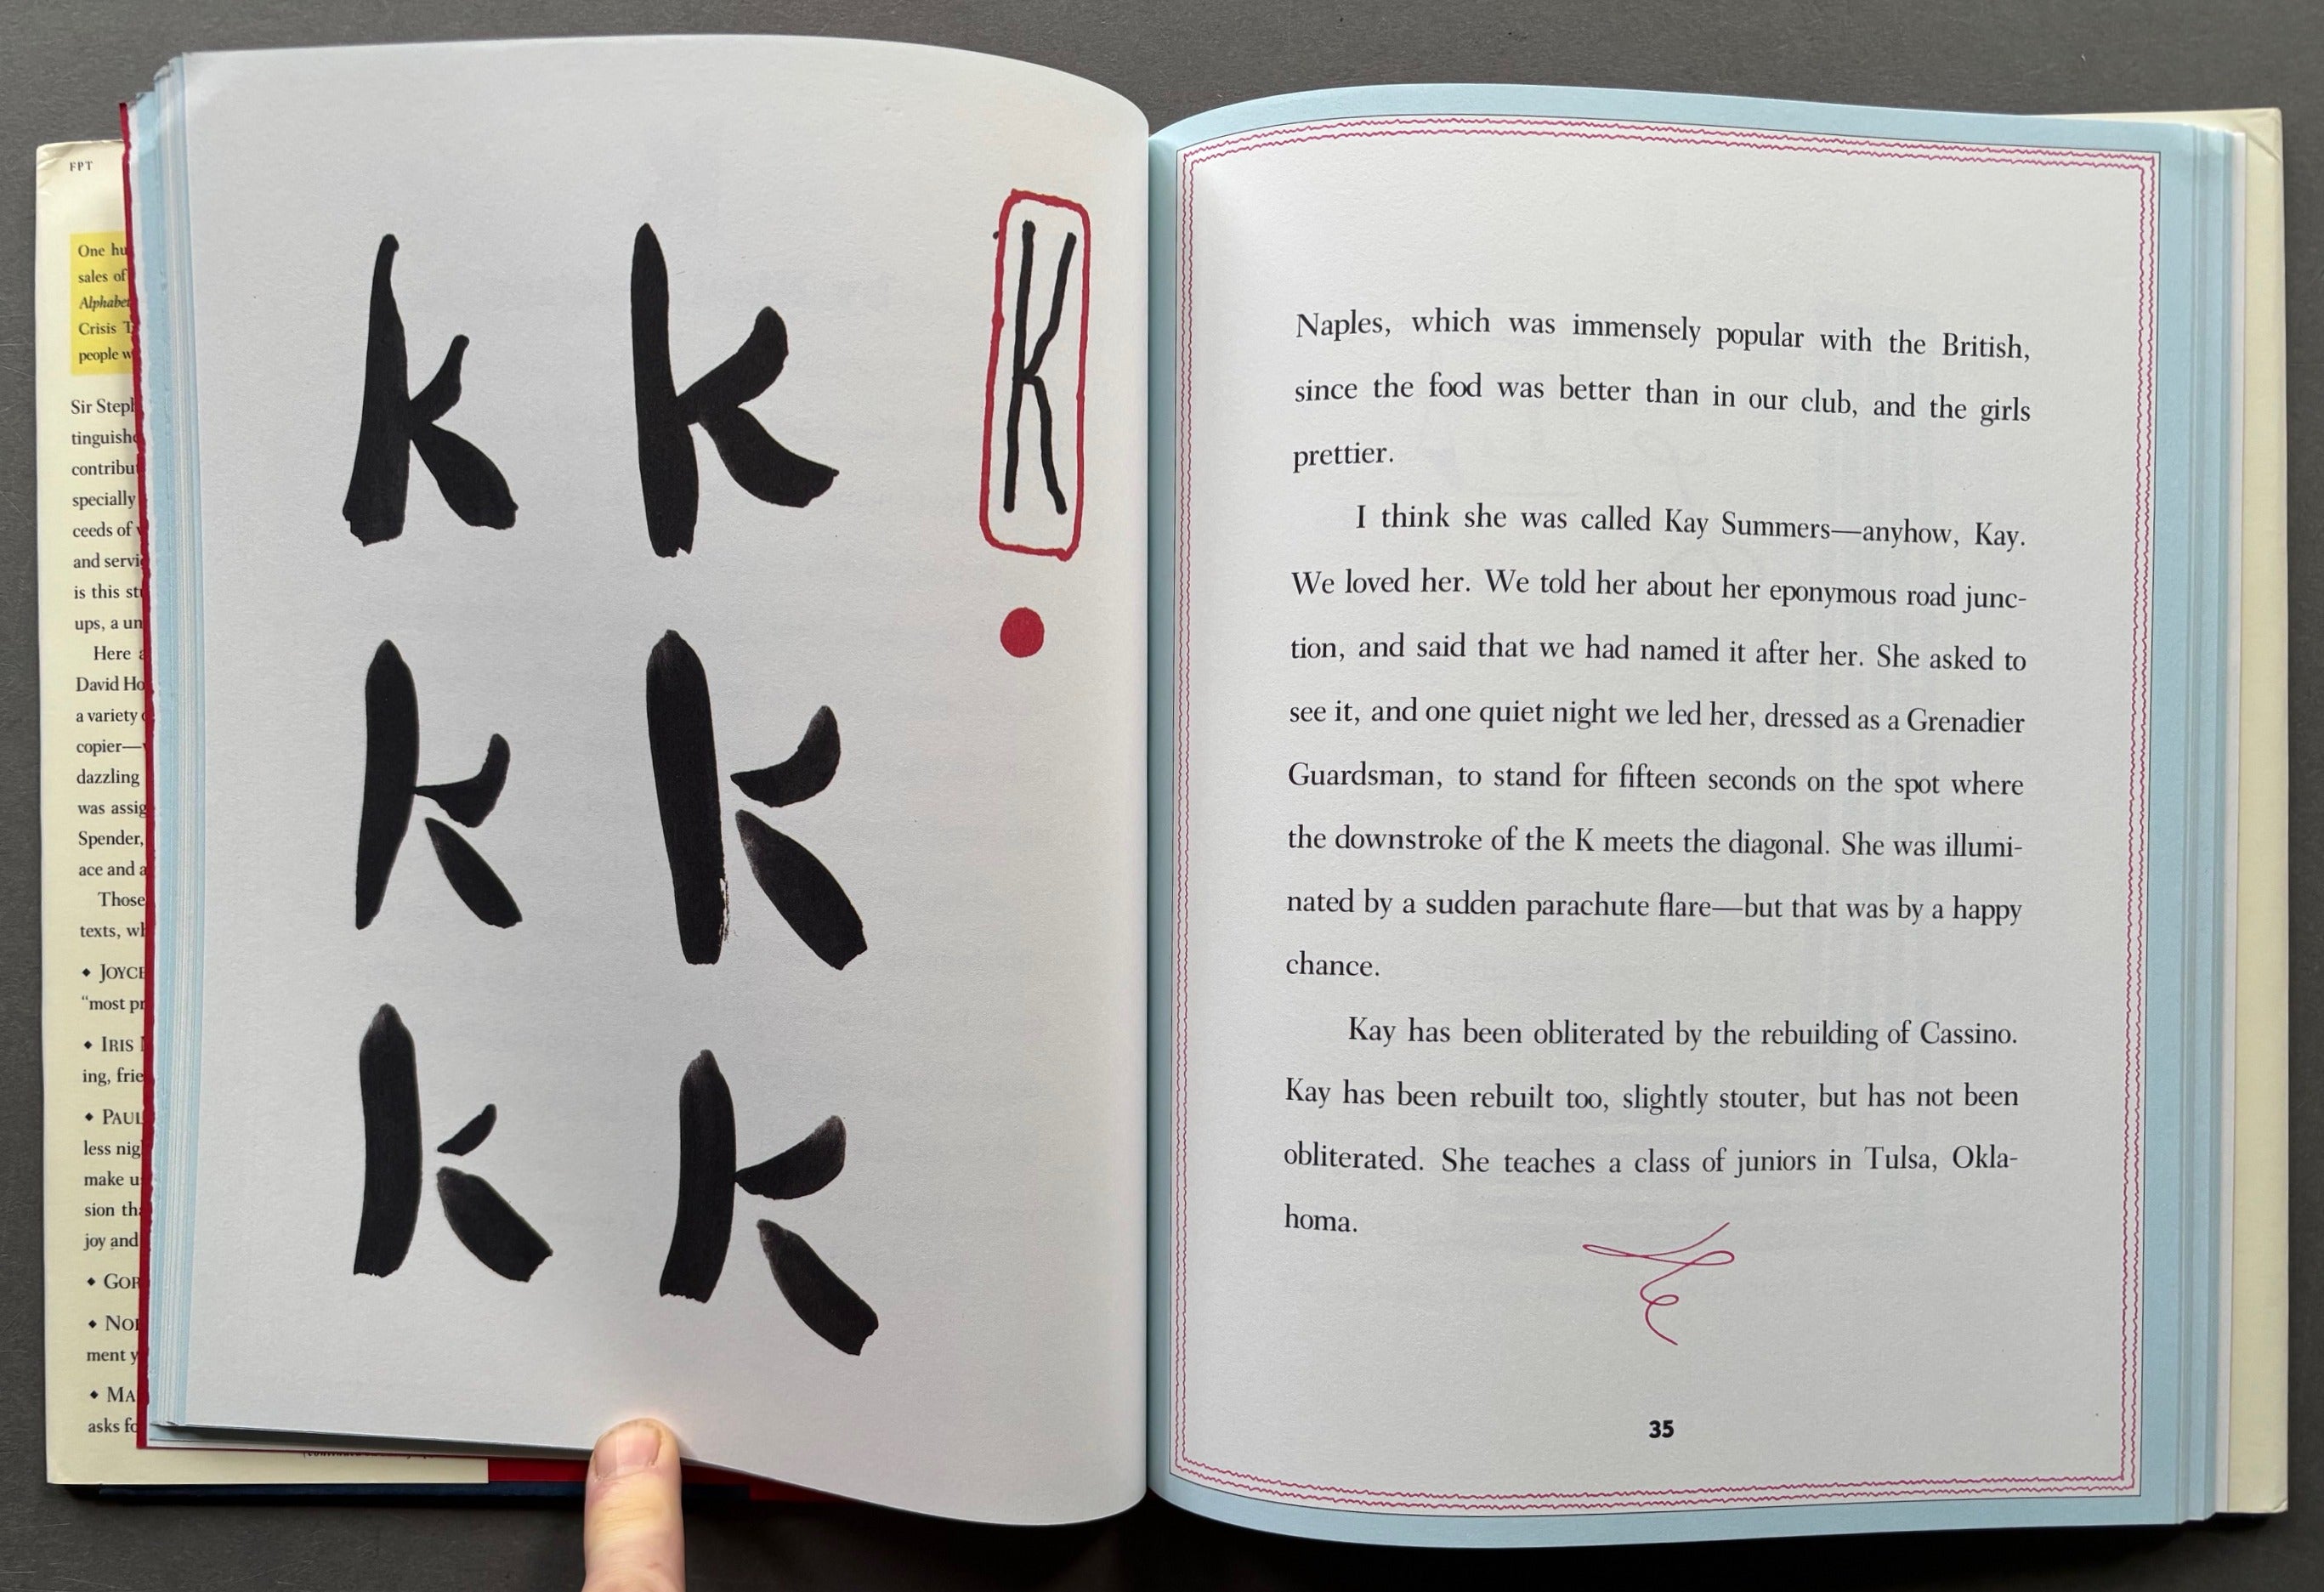 FPT
One
sales of
Crisis
people
Sir
ceeds of
and
is this
ups, a
Here
David
a variety
copier—
dazzling
was
Spender,
ace and
Those
texts,
◆ JOYCE
"most
◆ IRIS
ing,
◆ PAUL
less
make
sion
joy and
◆
◆
ment
◆
asks
k k
k k
k k
K
Naples, which was immensely popular with the British,
since the food was better than in our club, and the girls
prettier.
I think she was called Kay Summers—anyhow, Kay.
We loved her. We told her about her eponymous road junc-
tion, and said that we had named it after her. She asked to
see it, and one quiet night we led her, dressed as a Grenadier
Guardsman, to stand for fifteen seconds on the spot where
the downstroke of the K meets the diagonal. She was illumi-
nated by a sudden parachute flare—but that was by a happy
chance.
Kay has been obliterated by the rebuilding of Cassino.
Kay has been rebuilt too, slightly stouter, but has not been
obliterated. She teaches a class of juniors in Tulsa, Okla-
homa.
35